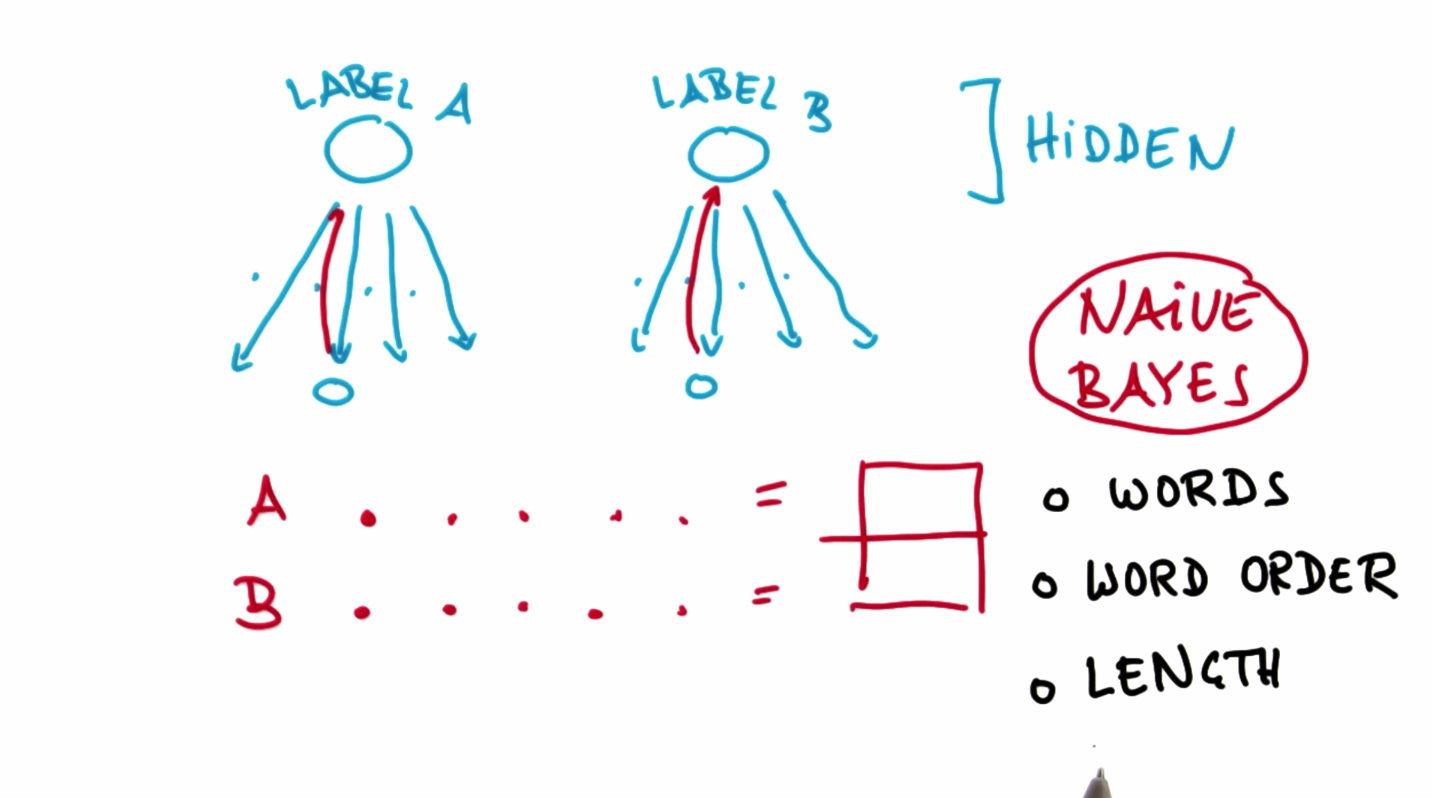 LABEL A
LABEL B
HIDDEN
NAIVE
BAYES
A . . . . . =
B . . . . . =
o WORDS
o WORD ORDER
o LENGTH